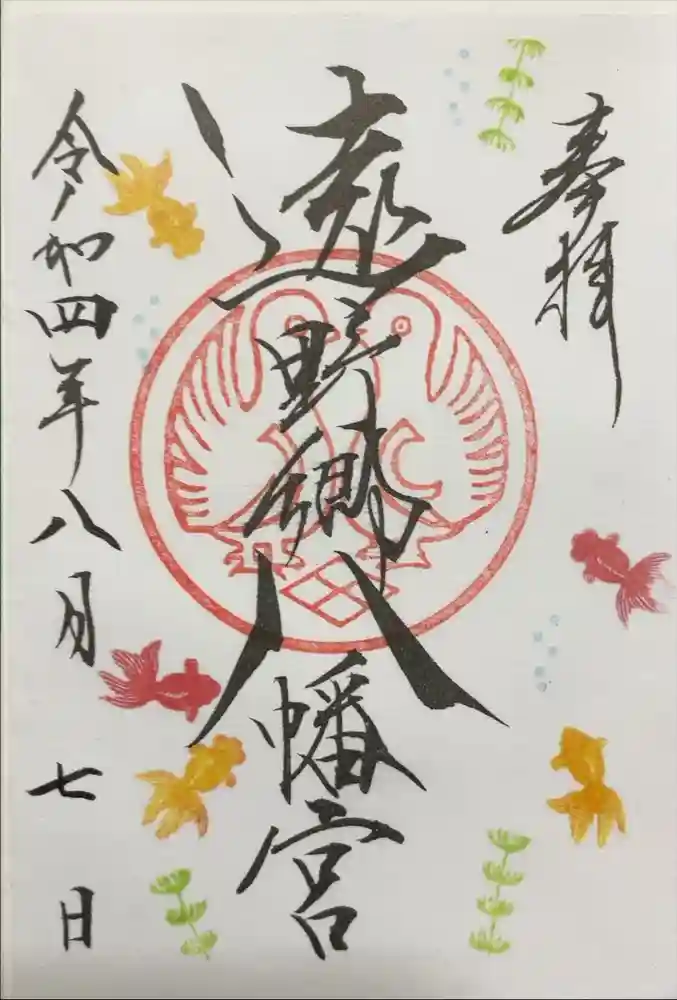 奉拝
遠野郷八幡宮
令和四年八月七日